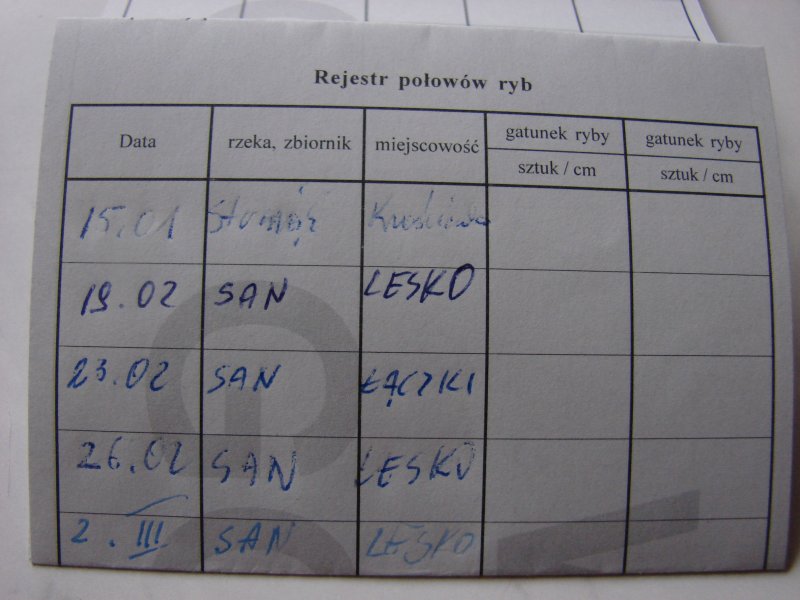 Rejestr połowów ryb
Data rzeka, zbiornik miejscowość gatunek ryby gatunek ryby
sztuk / cm sztuk / cm
15.01
19.02 SAN LESKO
23.02 SAN ŁĄCZKI
26.02 SAN LESKO
2. III SAN LESKO